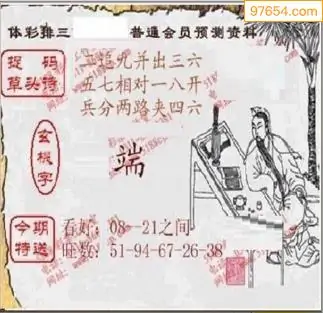 97654.com
体彩排三 普通会员预测资料
捉码
草头诗
追九并出三六
五七相对一八开
兵分两路夹四六
玄機字
端
今期
特送
看好：08—21之间
旺数：51-94-67-26-38